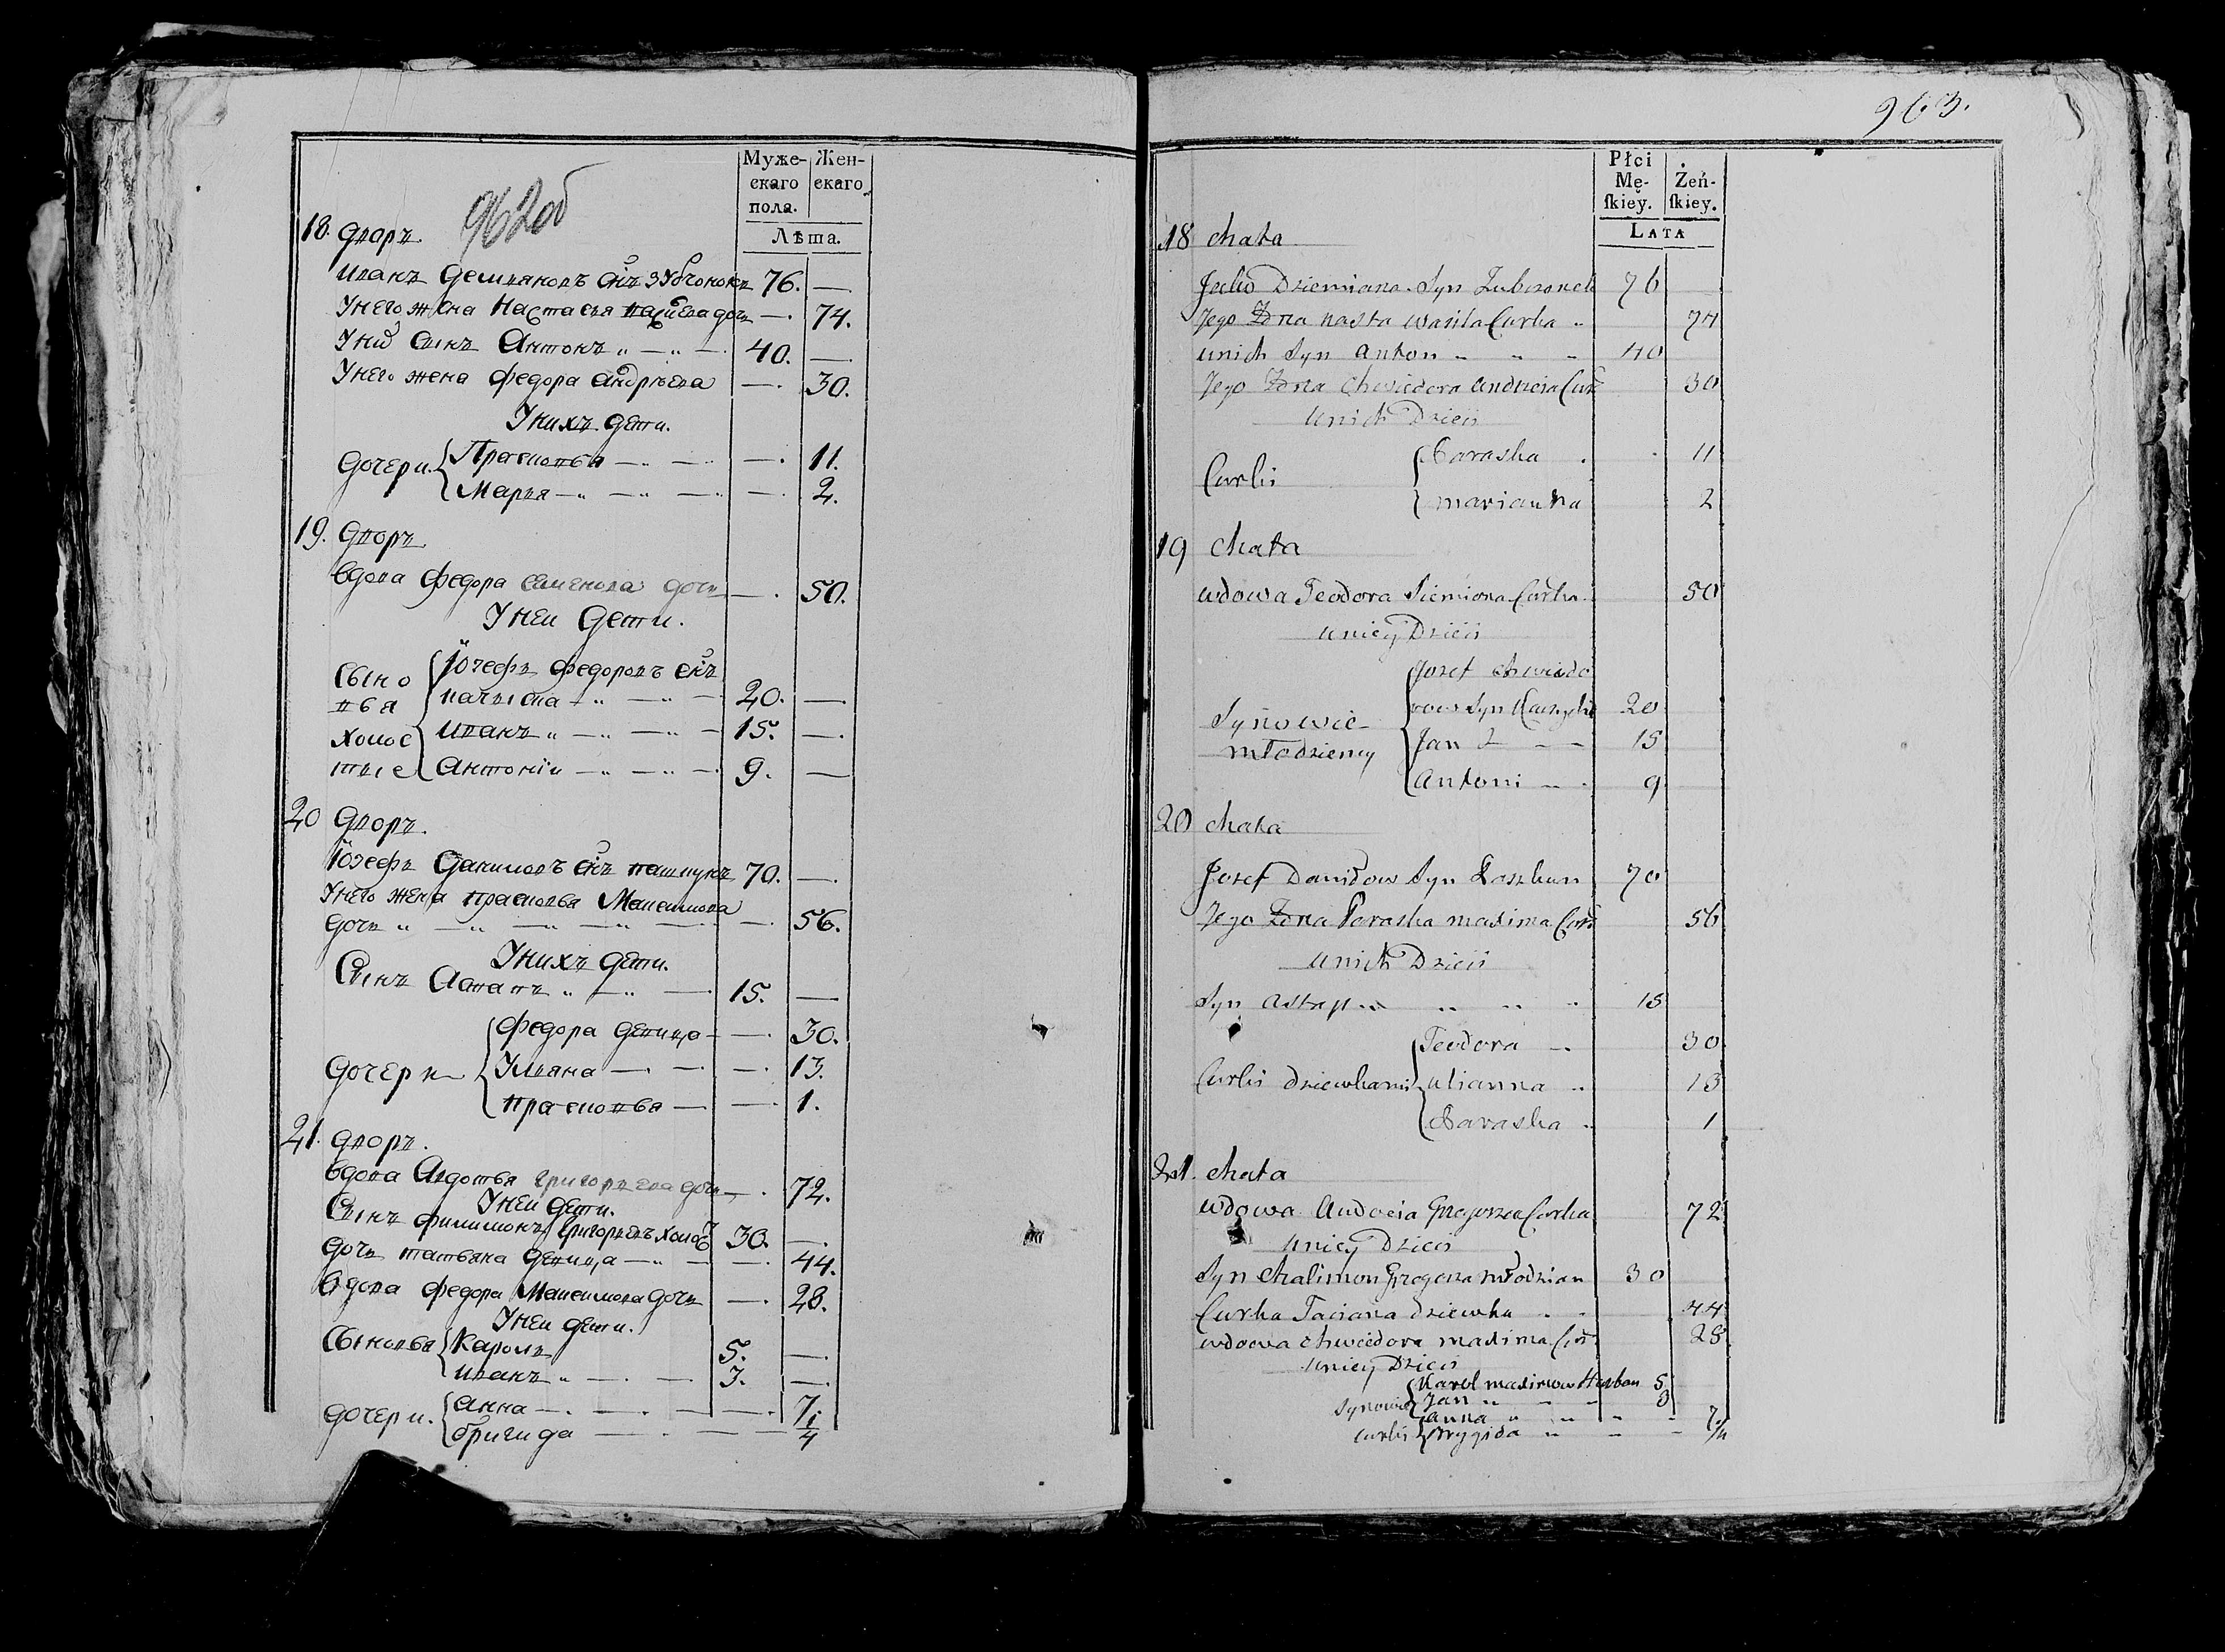 962об
Муже-
скаго
пола.
Жен-
скаго
Лѣта.
18. дворъ
Иванъ Демьяновъ снъ Зубчонокъ 76. —
У него жена Настасья Василева дочь — 74.
У них сынъ Антонъ 40. —
У него жена Федора Андрѣева — 30.
У нихъ дети.
дочери. Прасковья — 11.
Марья — 2.
19. дворъ
Вдова Федора Семенова дочь — 50.
У неи дети.
Сыно
вья
холос
тые
Іозефъ Федоровъ снъ
20. —
Иванъ 15. —
Антоніи 9. —
20 дворъ.
Іозефъ Даниловъ снъ 70. —
У него жена Прасковья Максимова
дочь — 56.
У нихъ дети.
Сынъ Астапъ 15. —
дочери Федора девица — 30.
Ульяна — 13.
Прасковья — 1.
21. дворъ.
Вдова Авдотья Григорьева дочь — 72.
У неи дети.
Сынъ Филимонъ Григорьевъ холос 30. —
дочь Татьяна девица — 44.
Вдова Федора Максимова дочь — 28.
У неи дети.
Сыновья Кароль 5. —
Иванъ 3. —
дочери. Анна — 7
Бригида — 1/4
963.
Płci
Mę-
ſkiey.
Żeń-
ſkiey.
LATA
18 chata
Dziemiana Syn Zubczonek 76
Jego Żona Nasta Wasila Curka 74
unich Syn Anton 40
Jego Żona Chwiedora Andrzeja Cur 30
unich Dzieci
Curki Paraska 11
Marianna 2
19 chata
wdowa Teodora Siemiona Curka 50
uniey Dzieci
Synowie
młodziency
Jozef Chwiedo
row Syn 20
Jan 15
Antoni 9
20 chata
Jozef Daniłow Syn 70
Jego Żona Paraska Maxima Cur 56
unich Dzieci
Syn Astap 15
Curki dziewkami Teodora 30
Ulianna 13
Paraska 1
21. chata
wdowa Audocia Gregorza Curka 72
uniey Dzieci
Syn Chalimon Gregorza młodzian 30
Curka Taciana dziewka 44
wdowa Chwiedora Maxima Cur 28
uniey Dzieci
Synowie Karol Maximow 5
Jan 3
Curki Anna 7
Brygida 1/4